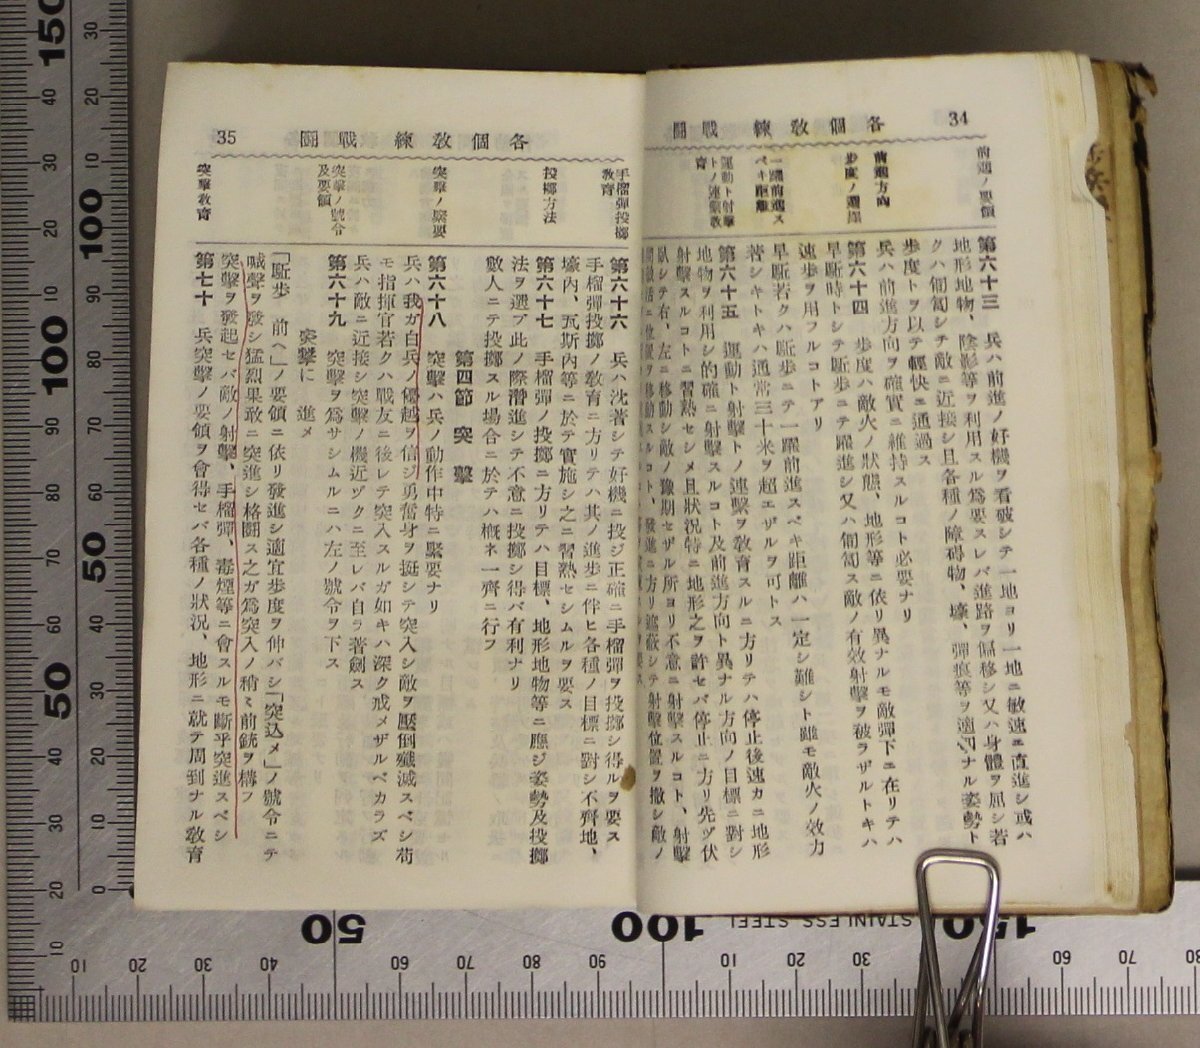 34
各個教練 戰鬪
前進ノ要領
前進方向
步度ノ選擇
一躍前進ス
ベキ距離
運動ト射擊
トノ連繫教
育
第六十三 兵ハ前進ノ好機ヲ看破シテ一地ヨリ一地ニ敏速ニ直進シ或ハ
地形地物、陰影等ヲ利用スル爲要スレバ進路ヲ偏移シ又ハ身體ヲ屈シ若
クハ匍匐シテ敵ニ近接シ且各種ノ障碍物、壕、彈痕等ヲ適切ナル姿勢ト
步度トヲ以テ輕快ニ通過ス
兵ハ前進方向ヲ確實ニ維持スルコト必要ナリ
第六十四 步度ハ敵火ノ狀態、地形等ニ依リ異ナルモ敵彈下ニ在リテハ
早駈時トシテ駈步ニテ躍進シ又ハ匍匐ス敵ノ有效射擊ヲ被ラザルトキハ
速步ヲ用フルコトアリ
早駈若クハ駈步ニテ一躍前進スベキ距離ハ一定シ難シト雖モ敵火ノ效力
著シキトキハ通常三十米ヲ超エザルヲ可トス
第六十五 運動ト射擊トノ連繫ヲ教育スルニ方リテハ停止後速カニ地形
地物ヲ利用シ的確ニ射擊スルコト及前進方向ト異ナル方向ノ目標ニ對シ
射擊スルコトニ習熟セシメ且狀況特ニ地形之ヲ許セバ停止ニ方リ先ヅ伏
臥シテ右、左ニ移動シ敵ノ豫期セザル所ヨリ不意ニ射擊スルコト、射擊
位置ヲ移動スルコト、發進ニ方リ遮蔽シテ射擊位置ヲ撤シ敵ノ
各個教練 戰鬪
35
手榴彈投擲
教育
投擲方法
突擊ノ緊要
突擊ノ號令
及要領
突擊教育
第六十六 兵ハ沈著シテ好機ニ投ジ正確ニ手榴彈ヲ投擲シ得ルヲ要ス
手榴彈投擲ノ教育ニ方リテハ其ノ進步ニ伴ヒ各種ノ目標ニ對シ不齊地、
壕內、瓦斯內等ニ於テ實施シ之ニ習熟セシムルヲ要ス
第六十七 手榴彈ノ投擲ニ方リテハ目標、地形地物等ニ應ジ姿勢及投擲
法ヲ選ブ此ノ際潛進シテ不意ニ投擲シ得バ有利ナリ
數人ニテ投擲スル場合ニ於テハ概ネ一齊ニ行フ
第四節 突擊
第六十八 突擊ハ兵ノ動作中特ニ緊要ナリ
兵ハ我ガ白兵ノ優越ヲ信ジ勇奮身ヲ挺シテ突入シ敵ヲ壓倒殲滅スベシ苟
モ指揮官若クハ戰友ニ後レテ突入スルガ如キハ深ク戒メザルベカラズ
兵ハ敵ニ近接シ突擊ノ機近ヅクニ至レバ自ラ著劍ス
第六十九 突擊ヲ爲サシムルニハ左ノ號令ヲ下ス
突擊に 進メ
「駈步 前ヘ」ノ要領ニ依リ發進シ適宜步度ヲ伸バシ「突込メ」ノ號令ニテ
喊聲ヲ發シ猛烈果敢ニ突進シ格鬪ス之ガ爲突入ノ稍〻前銃ヲ構フ
突擊ヲ發起セバ敵ノ射擊、手榴彈、毒煙等ニ會スルモ斷乎突進スベシ
第七十 兵突擊ノ要領ヲ會得セバ各種ノ狀況、地形ニ就テ周到ナル教育
150
100
50
0
10
20
30
40
50
60
70
80
90
STAINLESS STEEL